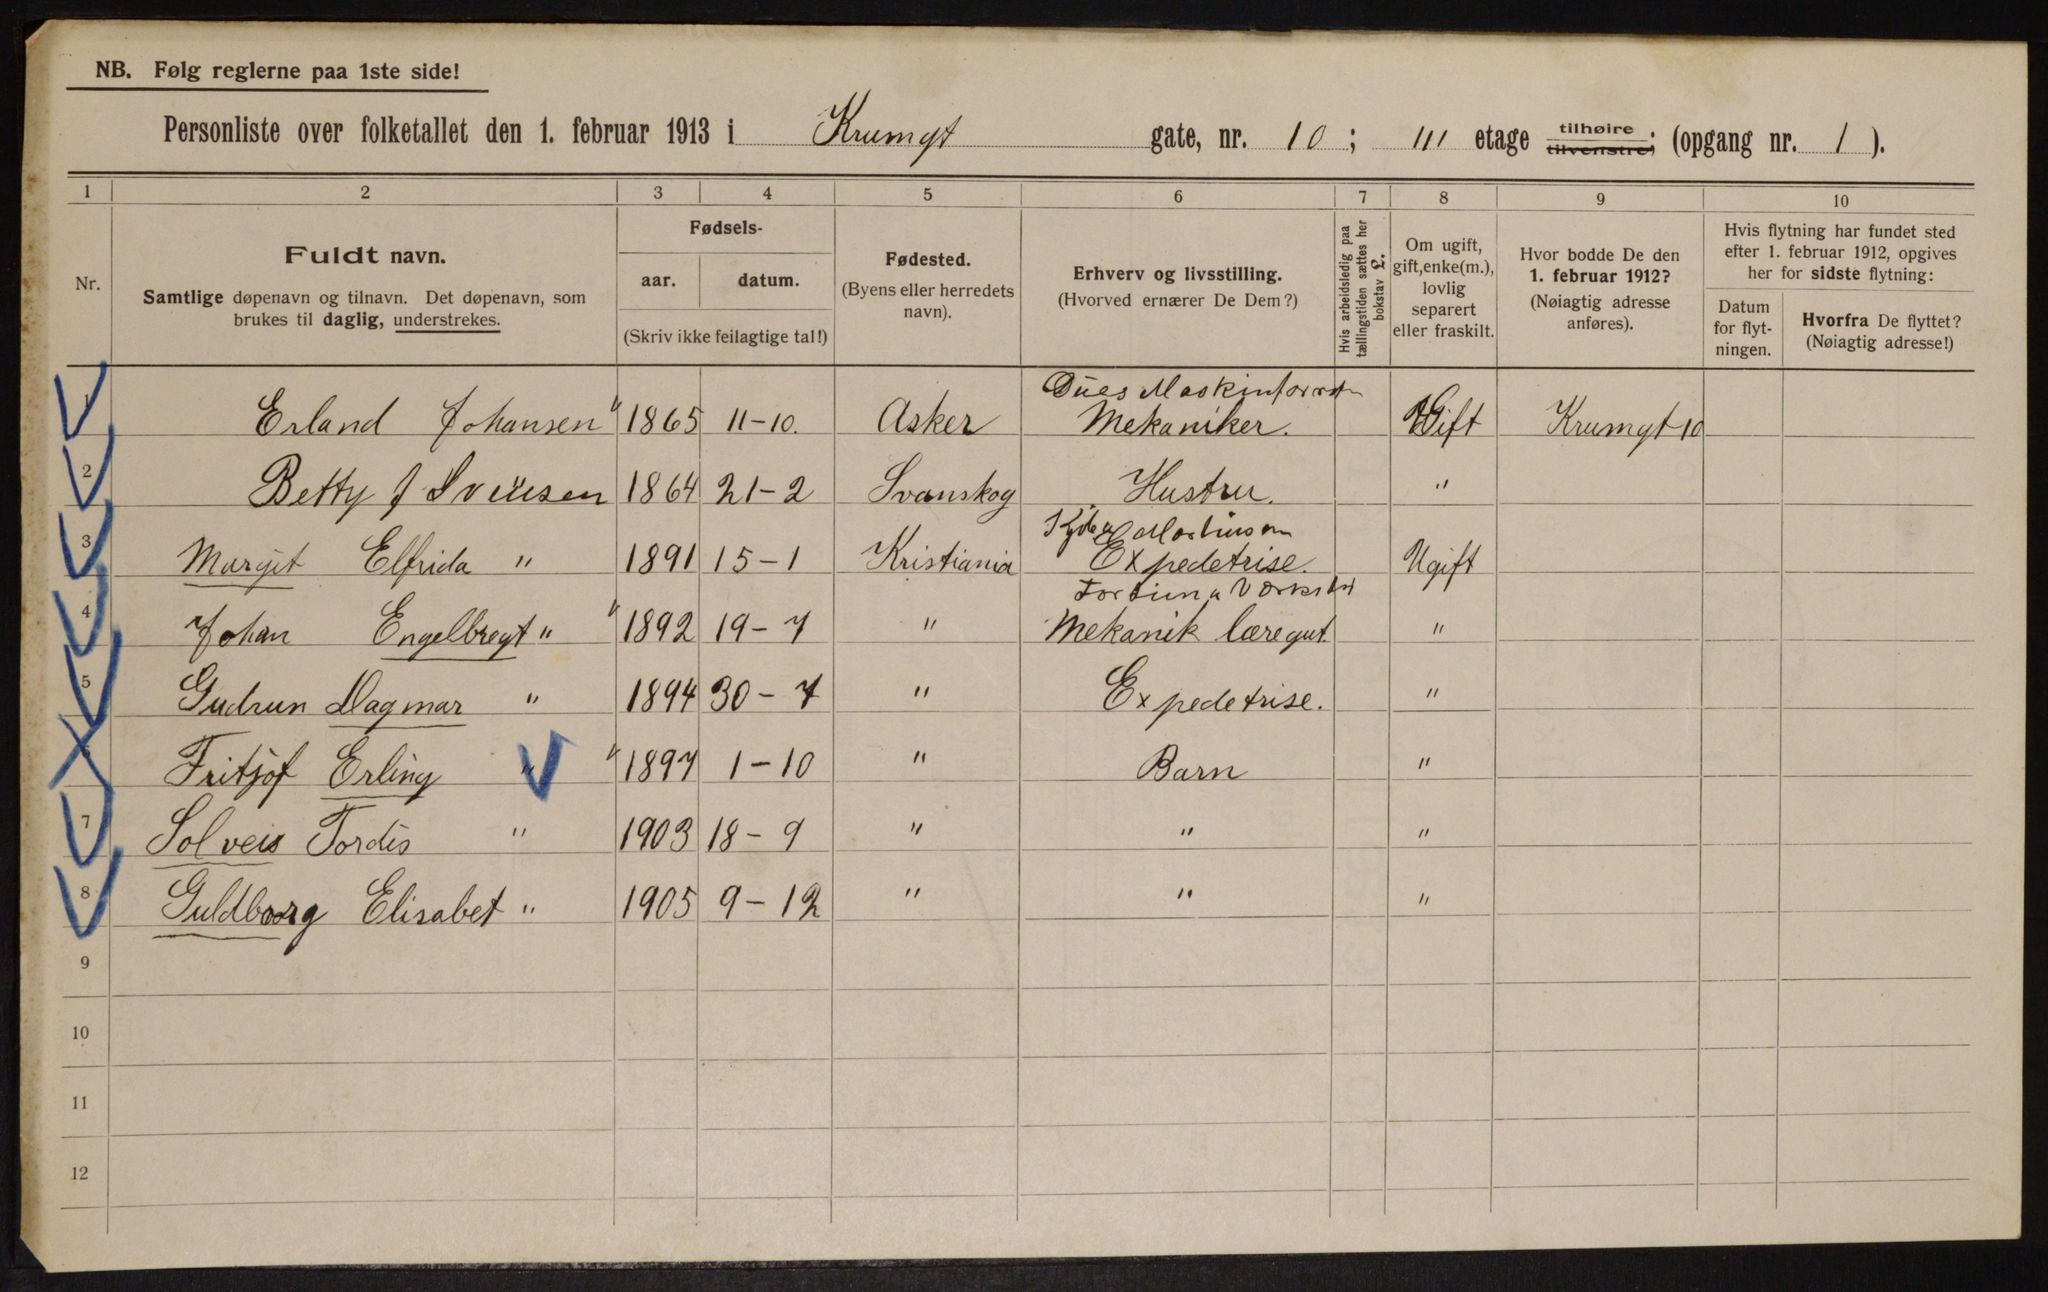 NB. Følg reglerne paa 1ste side!
Personliste over folketallet den 1. februar 1913 i Krumgt gate, nr. 10; III etage tilhøire tilvenstre; (opgang nr. 1).
1 2 3 4 5 6 7 8 9 10
Nr.
Fuldt navn.
Samtlige døpenavn og tilnavn. Det døpenavn, som
brukes til daglig, understrekes.
Fødsels-
aar. datum.
(Skriv ikke feilagtige tal!)
Fødested.
(Byens eller herredets
navn).
Erhverv og livsstilling.
(Hvorved ernærer De Dem?)
Hvis arbeidsledig paa
tællingstiden sættes her
bokstav £.
Om ugift,
gift, enke(m.),
lovlig
separert
eller fraskilt.
Hvor bodde De den
1. februar 1912?
(Nøiagtig adresse
anføres).
Hvis flytning har fundet sted
efter 1. februar 1912, opgives
her for sidste flytning:
Datum
for flyt-
ningen.
Hvorfra De flyttet?
(Nøiagtig adresse!)
1 Erland Johansen 1865 11-10. Asker Mekaniker. Gift Krumgt 10
2 Betty J 1864 21-2 Svanskog Hustru. "
3 Margit Elfrida " 1891 15-1 Kristiania Expedetrise. Ugift
4 Johan Engelbregt " 1892 19-7 " Mekanik læregut "
5 Gudrun Dagmar " 1894 30-7 " Expedetrise. "
6 Fritjof Erling " 1897 1-10 " Barn "
7 Solveis Tordis " 1903 18-9 " " "
8 Guldborg Elisabet " 1905 9-12 " " "
9
10
11
12